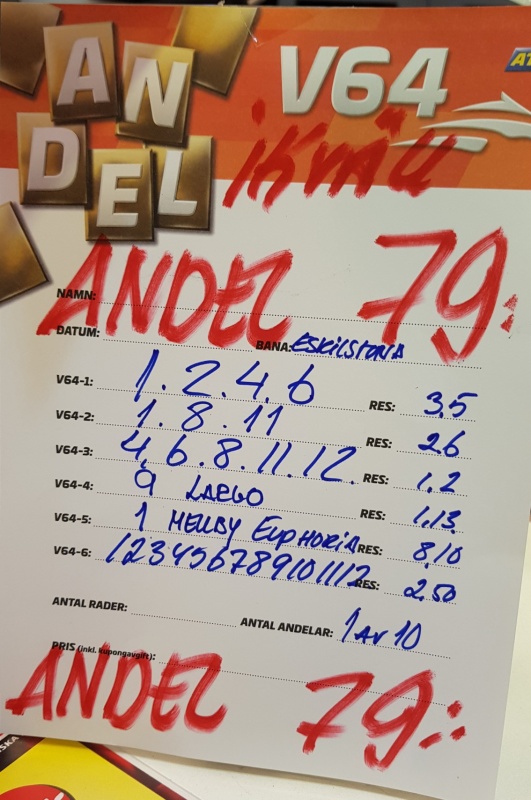 ANDEL
V64
AT
ikväll
ANDEL 79:
NAMN:
DATUM: BANA: ESKILSTUNA
V64-1: 1.2.4.6 RES: 3,5
V64-2: 1.8.11 RES: 2,6
V64-3: 4.6.8.11.12. RES: 1,2
V64-4: 9 LAEGO RES: 1,13
V64-5: 1 MELLBY EUPHORIA RES: 8,10
V64-6: 123456789101112 RES: 2,50
ANTAL RADER: ANTAL ANDELAR: 1 AV 10
PRIS (inkl. kupongavgift):
ANDEL 79:-
SKA